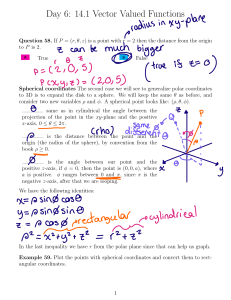 Day 6: 14.1 Vector Valued Functions
radius in xy-plane
Question 58. If P = (r, θ, z) is a point with r = 2 then the distance from the origin
to P is 2.
z can be much bigger
True
False
(true is z=0)
P = (2, 0, 5)
P(x,y,z) = (2,0,5)
Spherical coordinates The second case we will see to generalize polar coordinates
to 3D is to expand the disk to a sphere. We will keep the same θ as before, and
consider two new variables ρ and φ. A spherical point looks like: (ρ, θ, φ).
θ same as in cylindrical the angle between the
projection of the point in the xy-plane and the positive
x-axis, 0 ≤ θ ≤ 2π.
(rho)
same as
different
ρ is the distance between the point and the
origin (the radius of the sphere), by convention from the
book ρ ≥ 0.
φ is the angle between our point and the
positive z-axis, if φ = 0, then the point is (0, 0, ρ), where
ρ is positive. φ ranges between 0 and π, since π is the
negative z-axis, after that we are looping.
z
P
x
y
We have the following identities:
x = ρ sin φ cos θ
y = ρ sin φ sin θ
z = ρ cos φ
rectangular
cylindrical
ρ² = x² + y² + z² = r² + z²
In the last inequality we have r from the polar plane since that can help us graph.
Example 59. Plot the points with spherical coordinates and convert them to rect-
angular coordinates:
1